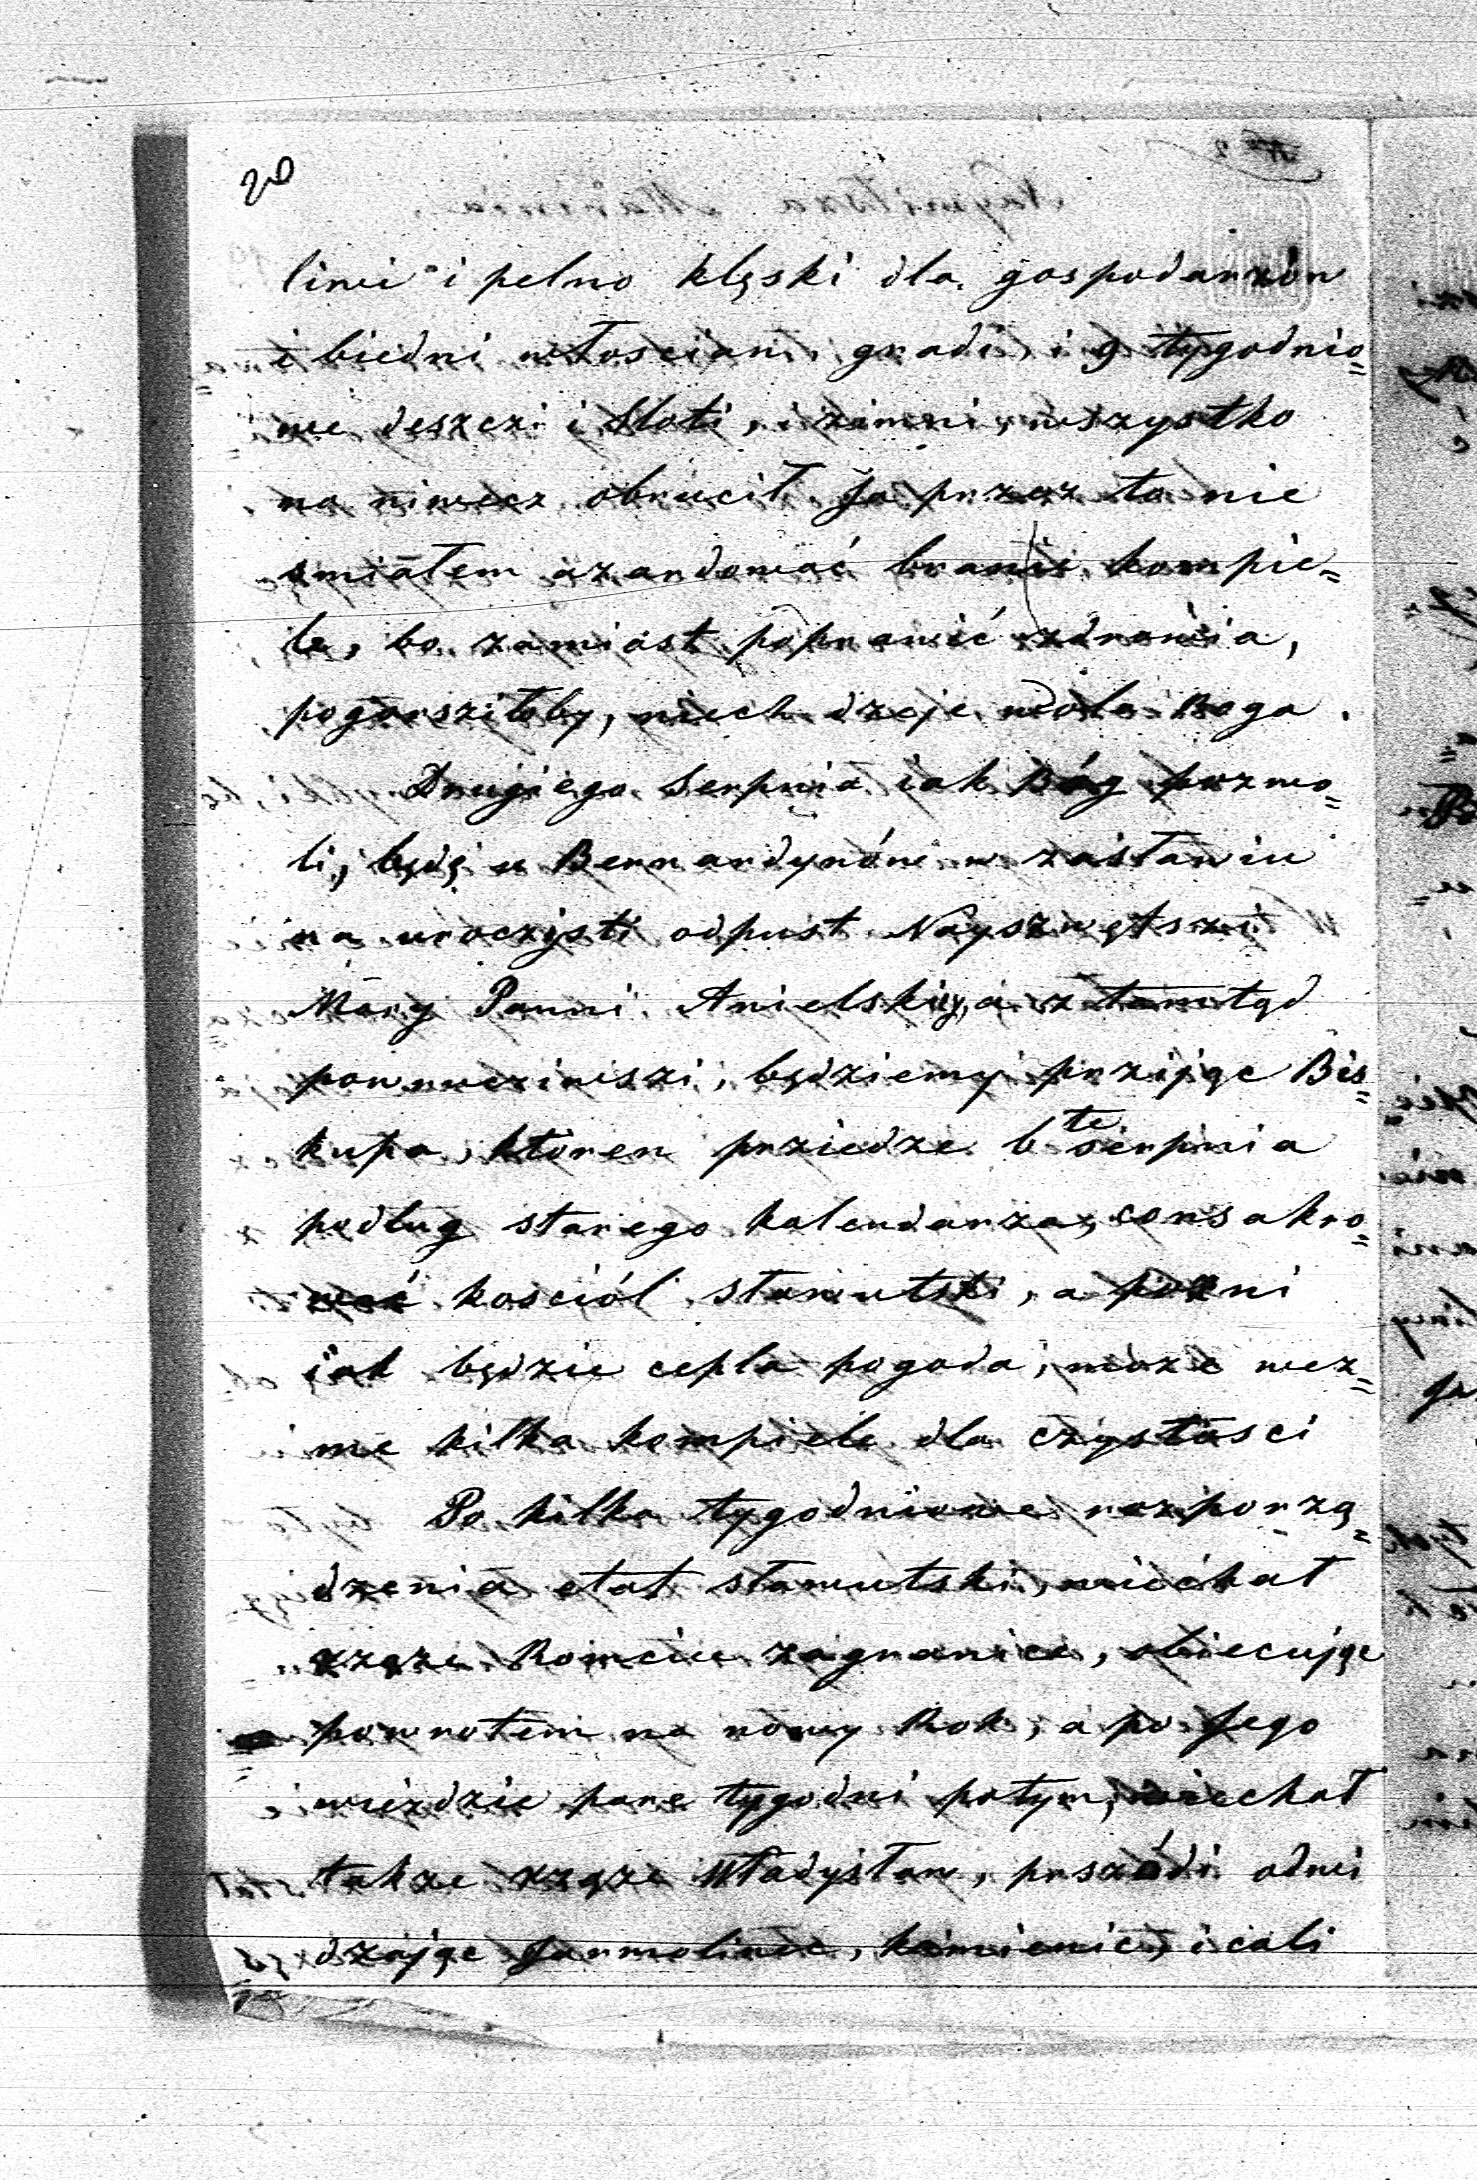 20
liwi i pelno klęski dla gospodarzów
i biedni włoscian, gradi, i 9 tygodnio=
we deszczi i Sloti, i zimni, wszystko
na niwecz obrucił. Ja przez to nie
smiałem azardować branii kompie=
le, bo zamiast poprawić zdrowia,
pogorsziłoby, niech dzeje wola Boga.
Drugiego Serpnia iak Bóg pozwo=
li, będę u Bernardynów w zasławiu
na uroczysti odpust Nayszwętszi
Mary Panni Anielskiy, a z tamtąd
powrucziwszi, będziemy przijąc Bis=
kupa, ktoren prziedze 6te sierpnia
podlug starego kalendarza, consakro=
wać kosciól sławutski, a pozni
iak będzie cepla pogoda, może wez=
me kilka kompiele dla czystosci
Po kilka tygodniowe rozporzą=
dzenia etat sławutski, wiechał
xząze Romciu zagranice, obiecując
powrotem na nowy Rok, a po Jego
wiezdzie pare tygodni potym, wiechał
takze xząze Władysław, przódi odwi
dzając Jarmolince, kamieniec, i cali